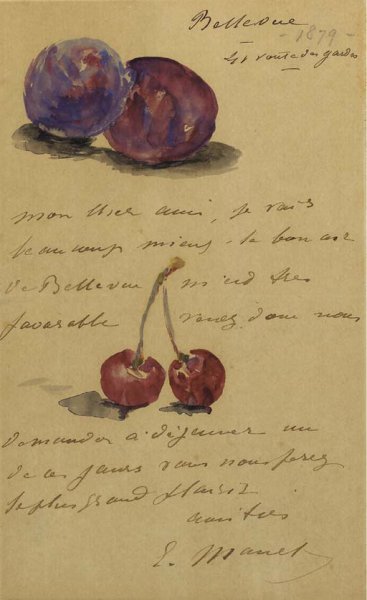 Bellevue
- 1879 -
41 route des gardes
mon cher ami, je vais
beaucoup mieux. le bon air
de Bellevue m'est très
favorable venez donc nous
demander à déjeuner un
de ces jours vous nous ferez
le plus grand plaisir
amitiés
E. Manet